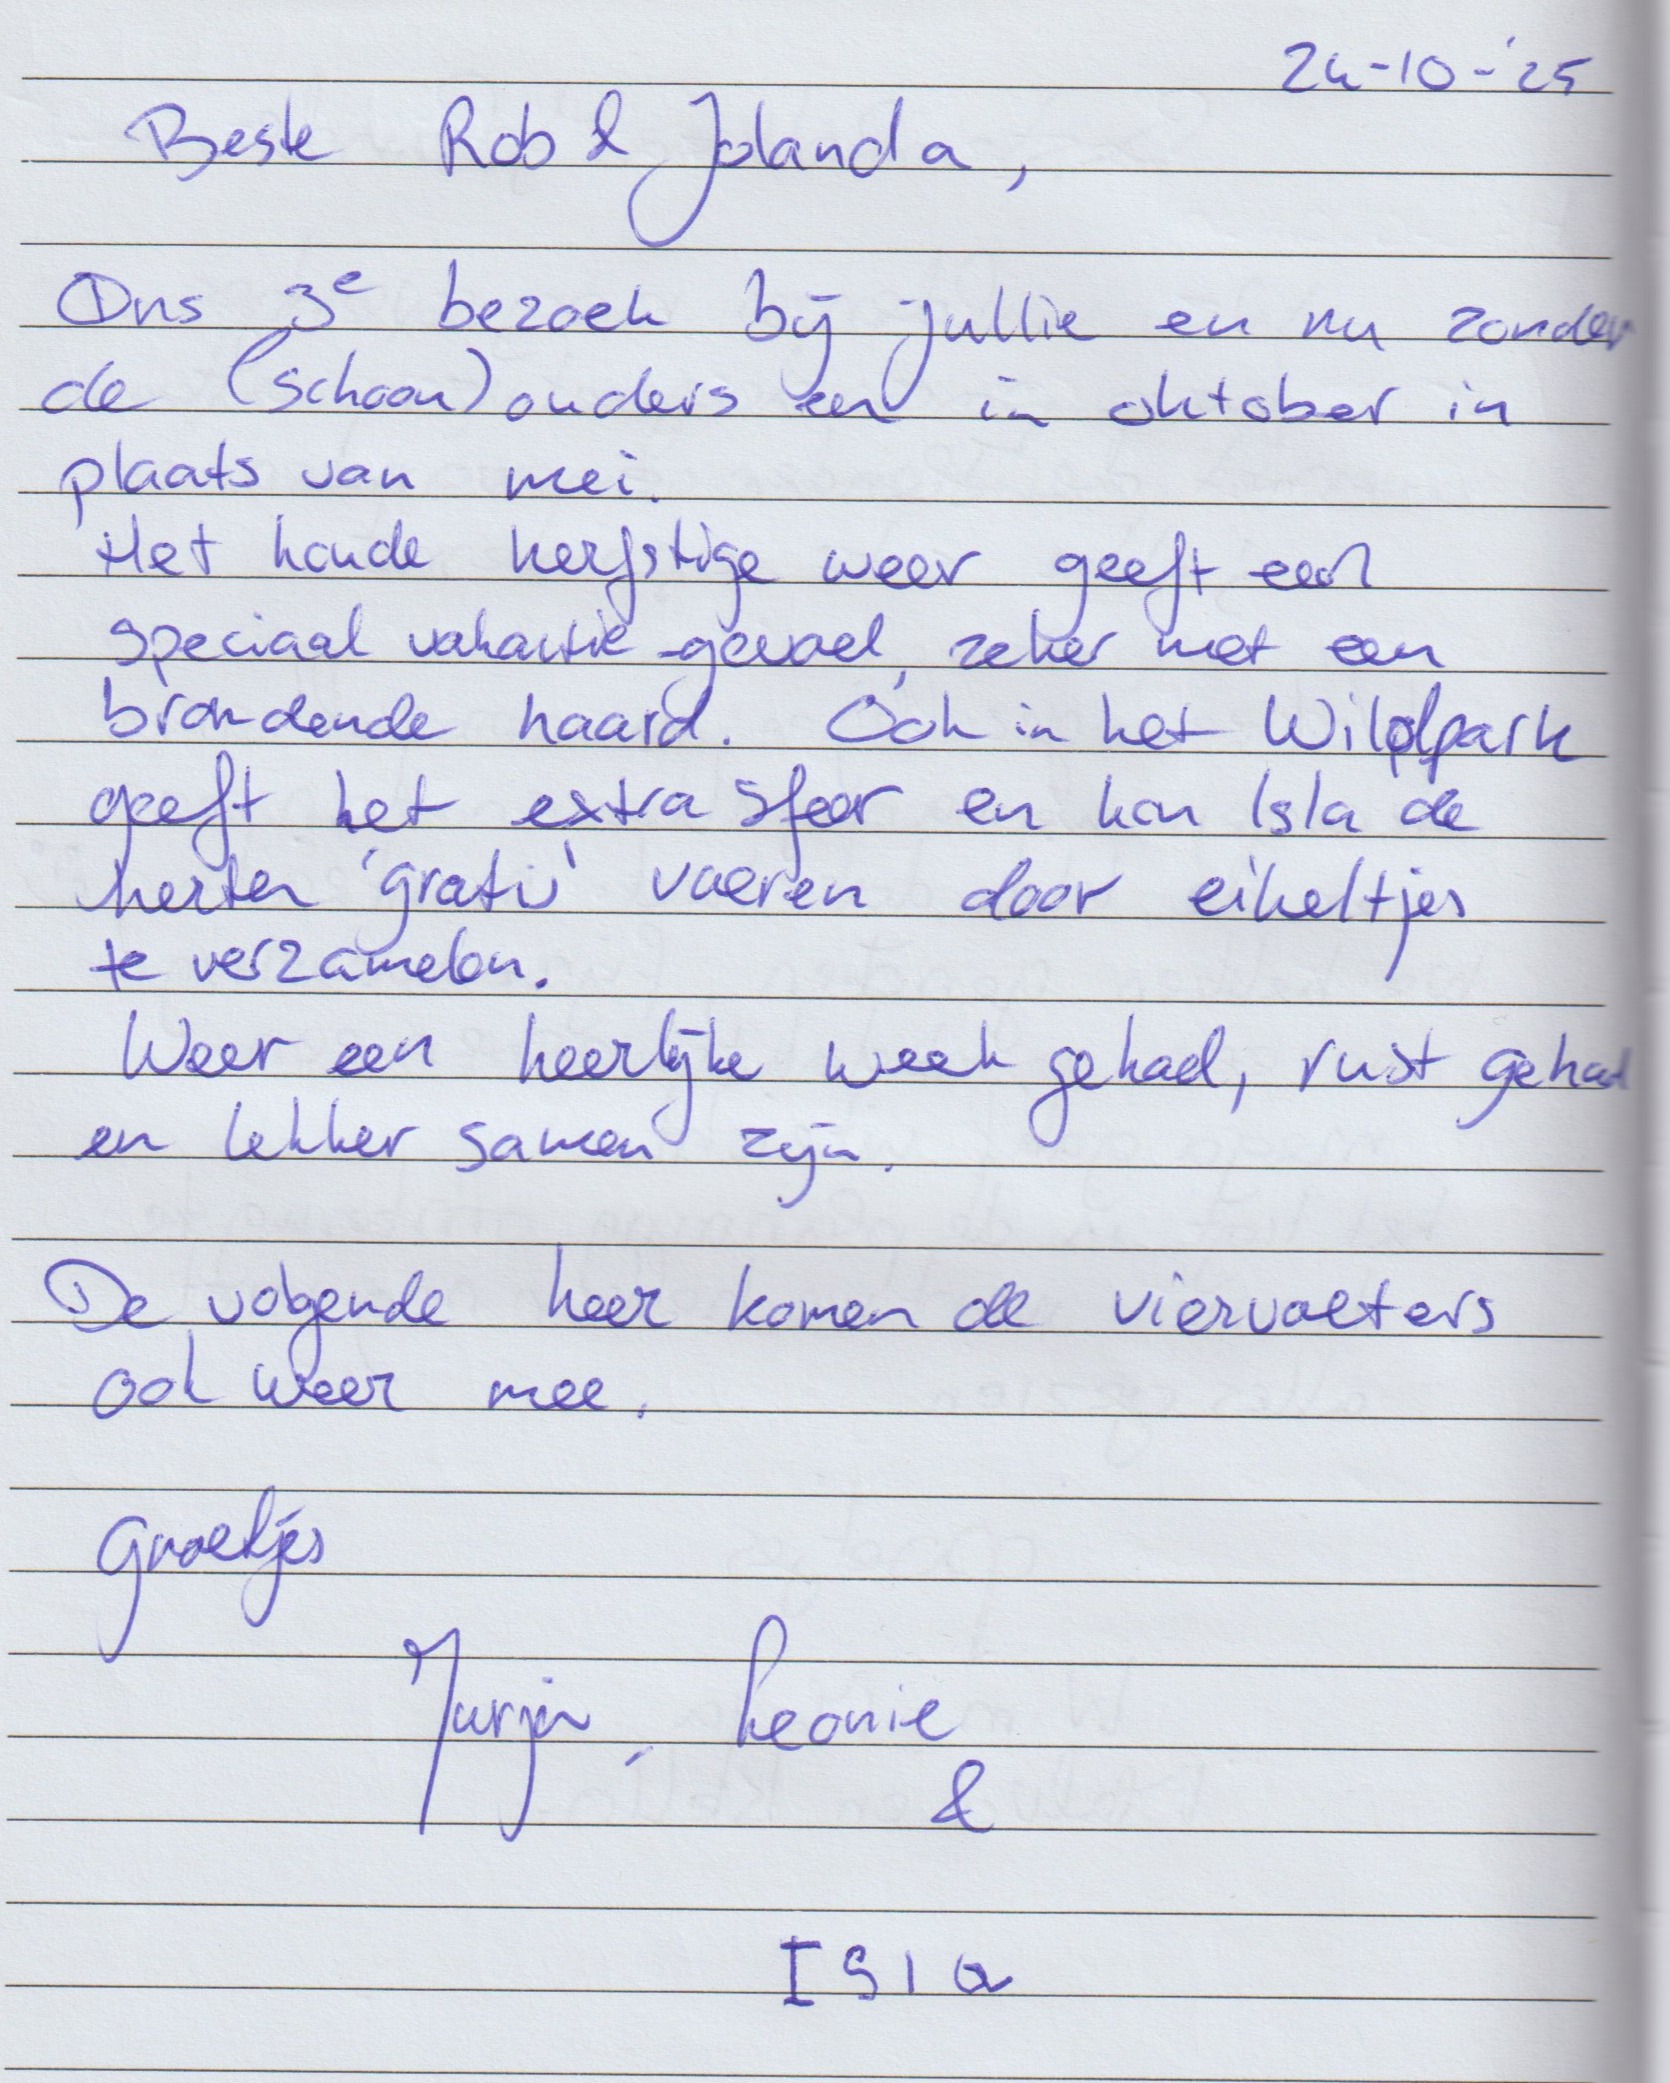 24-10-'25
Beste Rob & Jolanda,
Ons 3e bezoek bij jullie en nu zonder
de (schoon)ouders en in oktober in
plaats van mei.
Het koude herfstige weer geeft een
speciaal vakantie-gevoel, zeker met een
brandende haard. Ook in het Wildpark
geeft het extra sfeer en kan Isla de
herten 'gratis' voeren door eikeltjes
te verzamelen.
Weer een heerlijke week gehad, rust gehad
en lekker samen zijn.
De volgende keer komen de viervoeters
ook weer mee.
Groetjes
Jurjen, Leonie
&
Isla